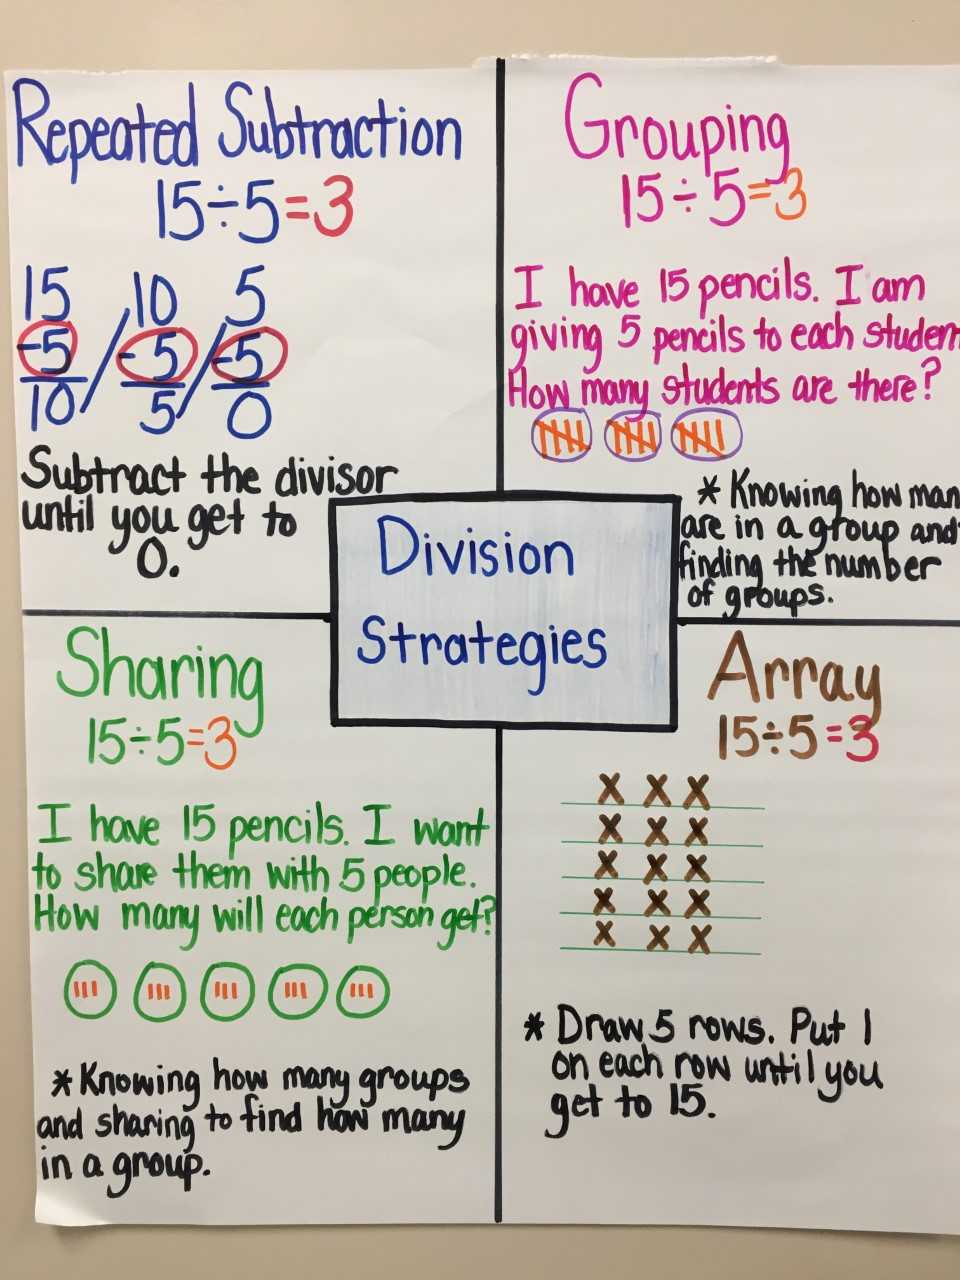 Repeated Subtraction
15÷5=3
15 10 5
-5 / -5 / -5
10 5 0
Subtract the divisor
until you get to
0.
Grouping
15÷5=3
I have 15 pencils. I am
giving 5 pencils to each studen
How many students are there?
* Knowing how man
are in a group and
finding the number
of groups.
Division
Strategies
Sharing
15÷5=3
I have 15 pencils. I want
to share them with 5 people.
How many will each person get?
* Knowing how many groups
and sharing to find how many
in a group.
Array
15÷5=3
x x x
x x x
x x x
x x x
x x x
* Draw 5 rows. Put 1
on each row until you
get to 15.